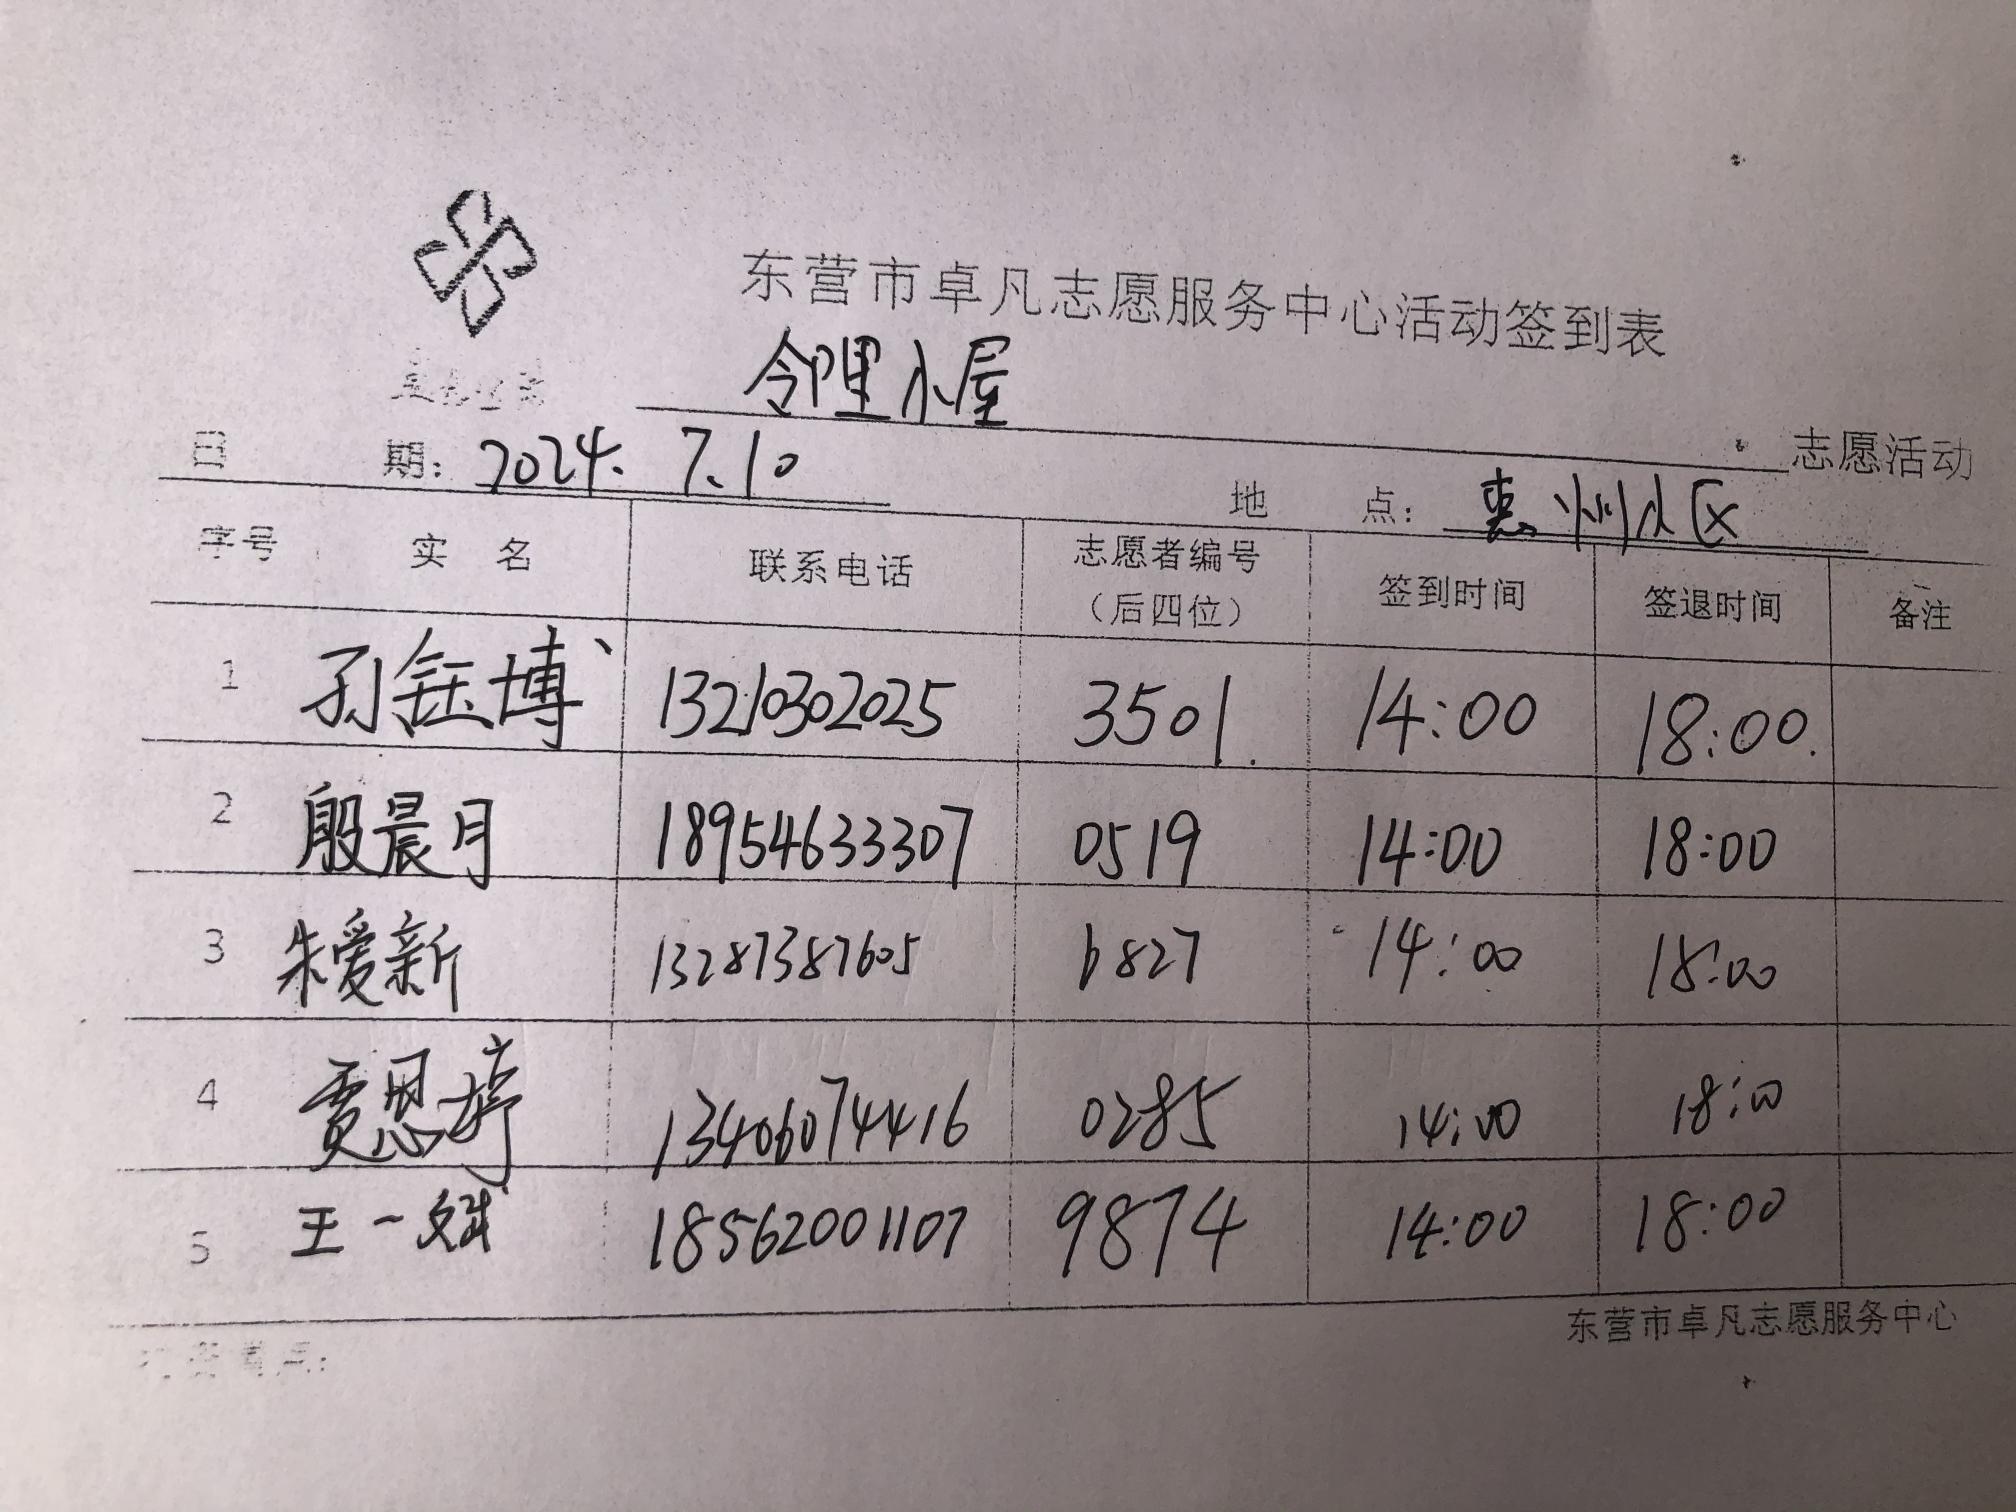 东营市卓凡志愿服务中心活动签到表
邻里小屋 志愿活动
日 期：2024.7.10 地 点：惠州小区
字号 实 名 联系电话 志愿者编号（后四位） 签到时间 签退时间 备注
1 孙钰博 13210302025 3501 14:00 18:00
2 殷晨月 18954633307 0519 14:00 18:00
3 朱爱新 13287387605 6827 14:00 18:00
4 贾恩婷 13406074416 0285 14:00 18:00
5 王一斌 18562001107 9874 14:00 18:00
东营市卓凡志愿服务中心